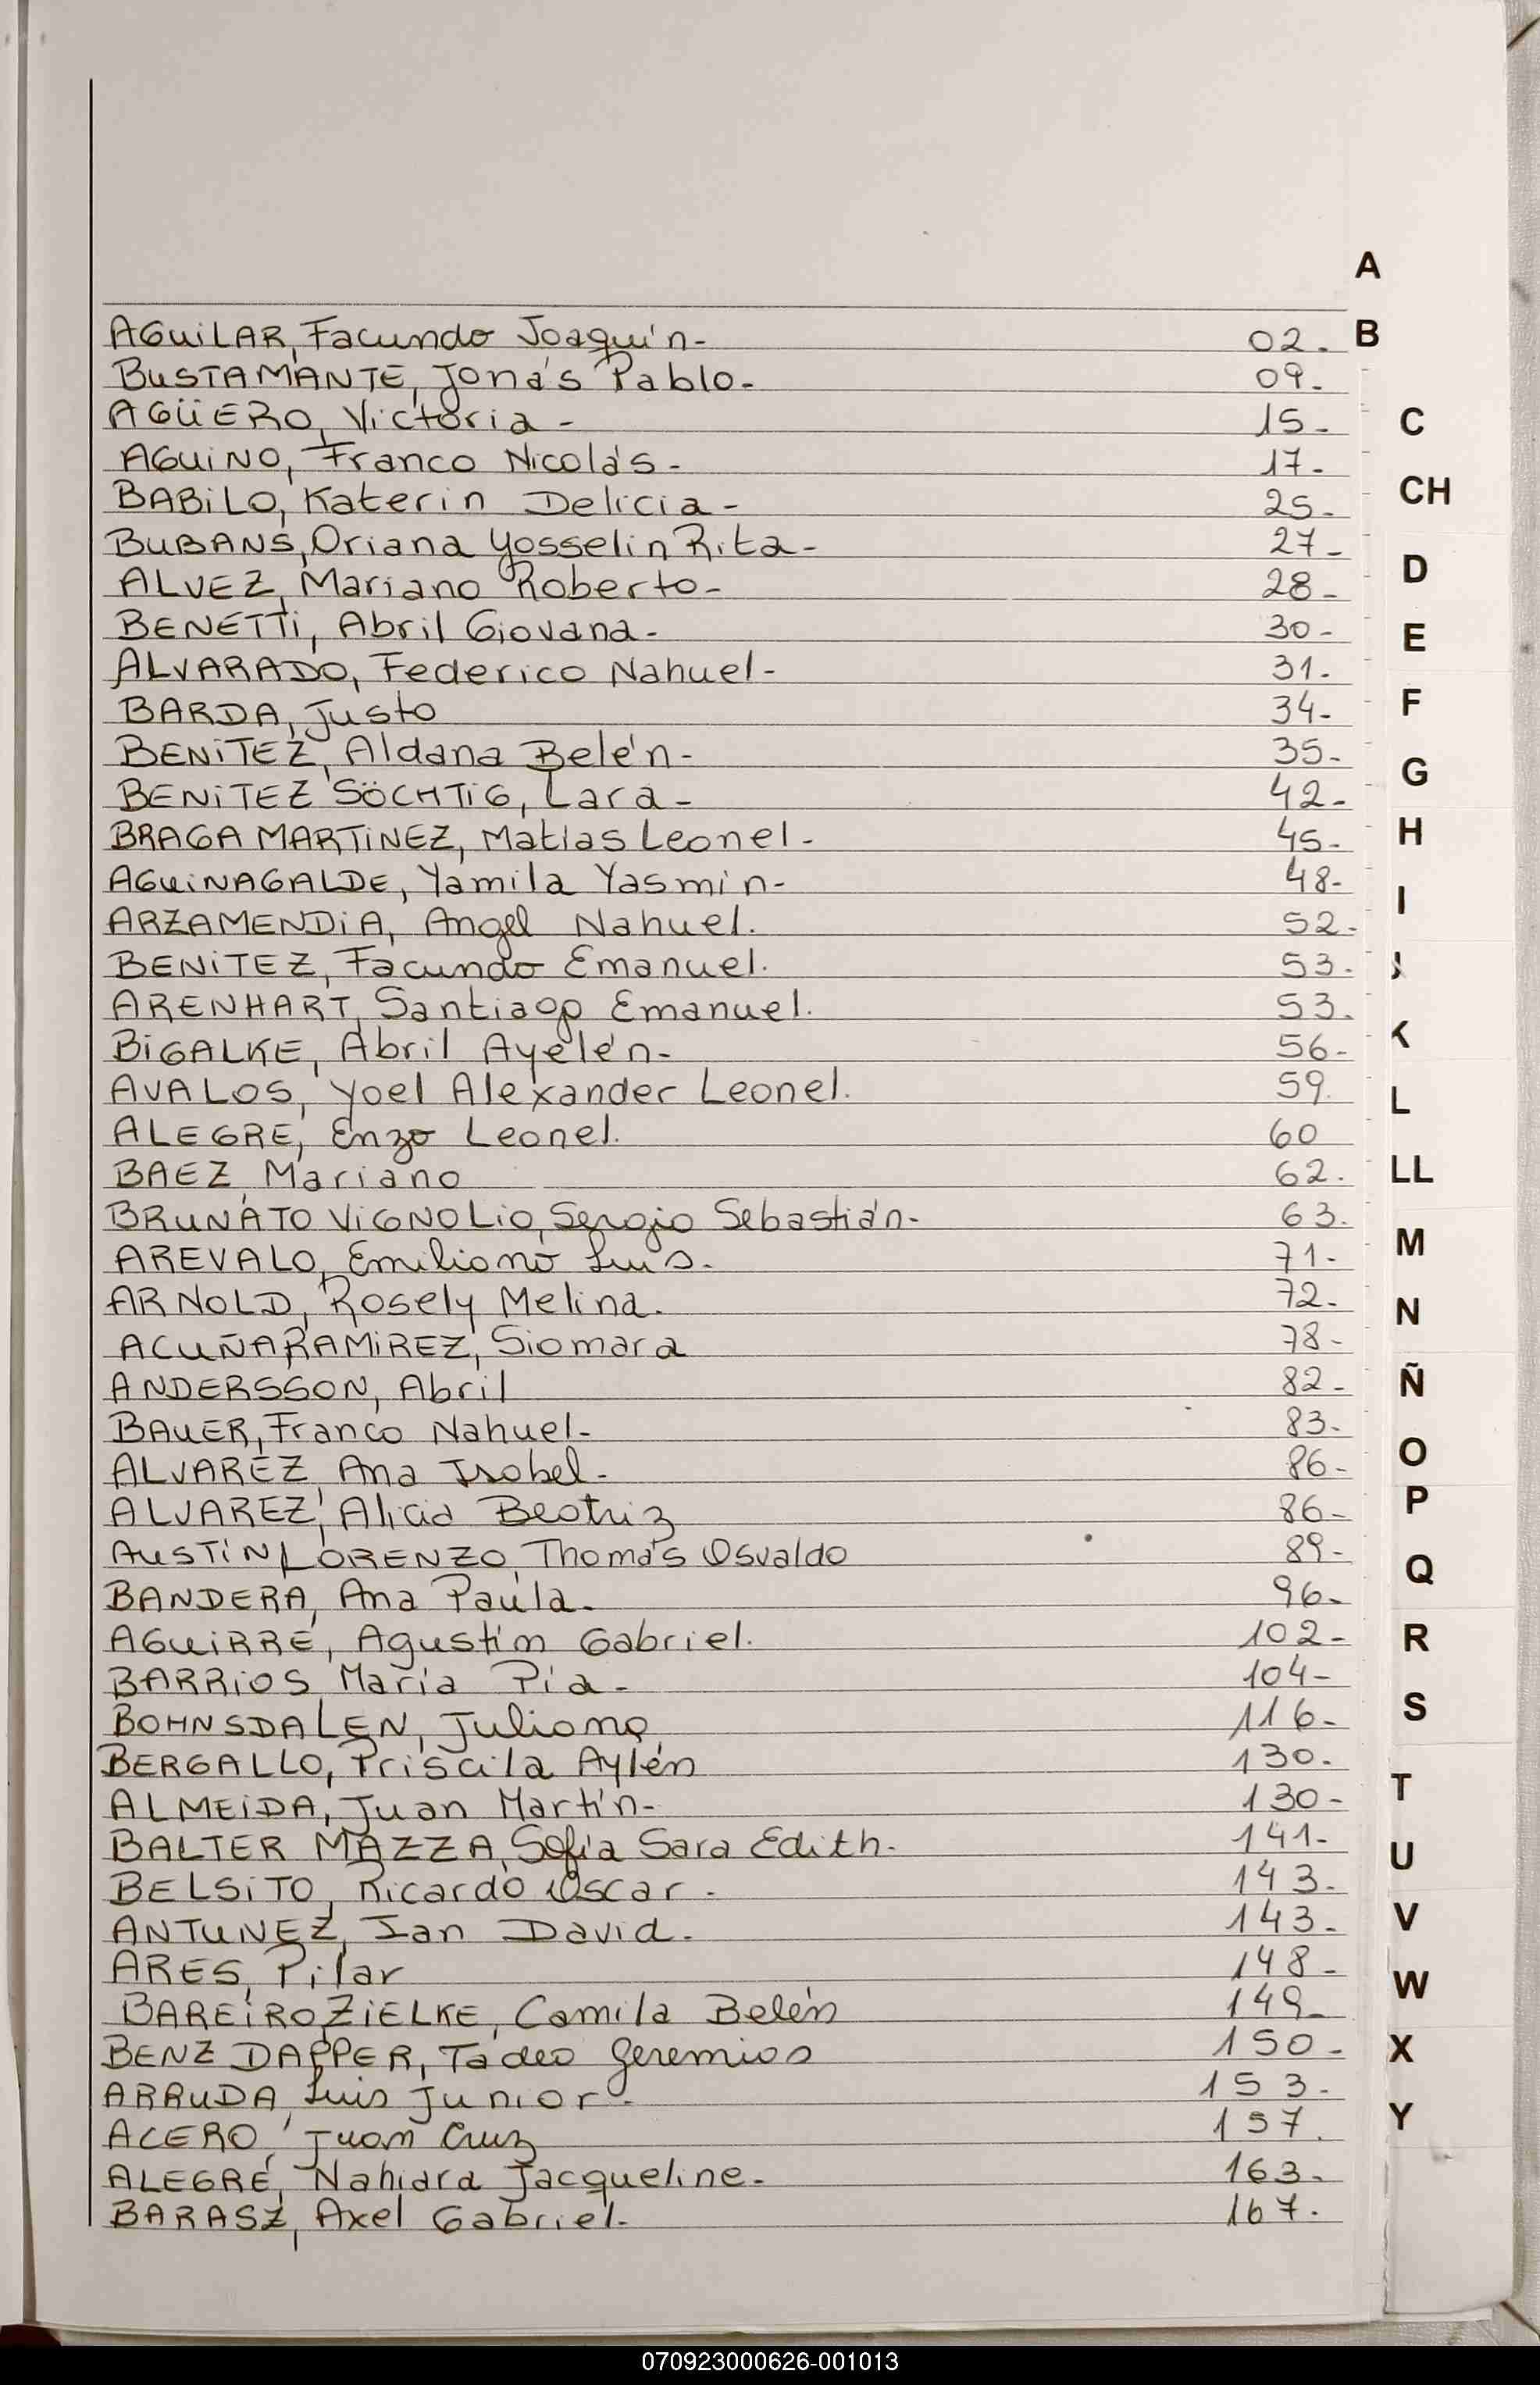 A
AGUiLAR, Facundo Joaquín- 02. B
BUSTAMANTE, Jonás Pablo- 09-
AGÜERO, Victoria - 15- C
AGUiNO, Franco Nicolás- 17-
BABiLO, Katerin Delicia - 25- CH
BUBANS, Oriana Yosselin Rita- 27-
ALVEZ, Mariano Roberto- 28- D
BENETTi, Abril Giovana- 30- E
ALVARADO, Federico Nahuel- 31.
BARDA, Justo 34- F
BENiTEZ, Aldana Belén- 35-
BENiTEZ SÖCHTiG, Lara- 42- G
BRAGA MARTiNEZ, Matías Leonel- 45- H
AGUiNAGALDE, Yamila Yasmín- 48-
ARZAMENDiA, Angel Nahuel. 52- I
BENiTEZ, Facundo Emanuel. 53- J
ARENHART, Santiago Emanuel. 53.
BiGALKE, Abril Ayelén- 56- K
AVALOS, Yoel Alexander Leonel. 59. L
ALEGRE, Enzo Leonel. 60
BAEZ, Mariano 62. LL
BRUNATO ViGNOLio, Sergio Sebastián- 63.
AREVALO, Emiliano Luis. 71- M
ARNOLD, Rosely Melina. 72- N
ACUÑA RAMiREZ, Siomara 78-
ANDERSSON, Abril 82- Ñ
BAUER, Franco Nahuel- 83-
ALVAREZ, Ana Isabel- 86- O
ALVAREZ, Alicia Beatriz 86- P
AUSTiN LORENZO, Thomás Osvaldo 89- Q
BANDERA, Ana Paula. 96-
AGUiRRE, Agustín Gabriel. 102- R
BARRiOS, María Pía- 104-
BOHNSDALEN, Juliana 116- S
BERGALLO, Priscila Aylén 130-
ALMEiDA, Juan Martín- 130- T
BALTER MAZZA, Sofía Sara Edith. 141- U
BELSiTO, Ricardo Oscar. 143-
ANTUNEZ, Ian David. 143- V
ARES, Pilar 148- W
BAREiRO ZiELKE, Camila Belén 149-
BENZ DAPPER, Tadeo Geremias 150- X
ARRUDA, Luis Junior. 153-
ACERO, Juan Cruz 157. Y
ALEGRE, Nahiara Jacqueline- 163-
BARASZ, Axel Gabriel- 167.
070923000626-001013